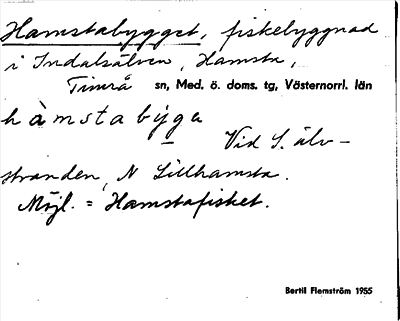 Hamstabygget, fiskebyggnad
i Indalsälven, Hamsta,
Timrå sn, Med. ö. doms. tg, Västernorrl. län
hàmstabýga
Vid S. älv-
stranden, N Lillhamsta.
Möjl. = Hamstafisket.
Bertil Flemström 1955